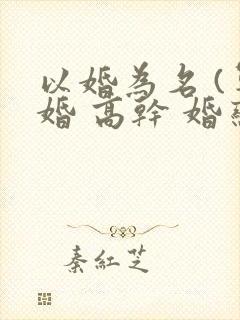 以婚為名(
婚 高幹 婚
秦紅芝